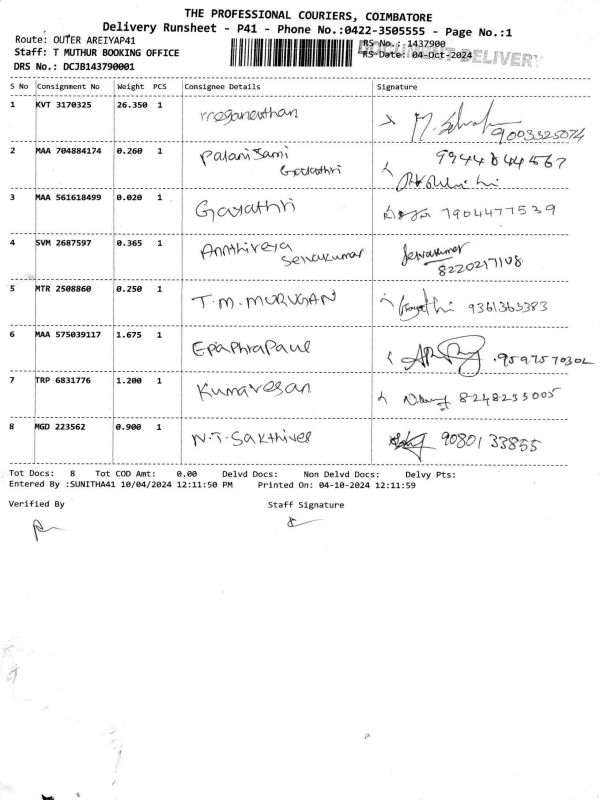 THE PROFESSIONAL COURIERS, COIMBATORE
Delivery Runsheet - P41 - Phone No.:0422-3505555 - Page No.:1
Route: OUTER AREIYAP41
RS No.: 1437900
DOCUMENT DELIVERY
Staff: T MUTHUR BOOKING OFFICE
RS-Date: 04-Oct-2024
DRS No.: DCJB143790001
S No Consignment No Weight PCS Consignee Details Signature
1 KVT 3170325 26.350 1 meganathan
9003325074
2 MAA 704884174 0.260 1 Palanisami 9944844567
Gayathri
3 MAA 561618499 0.020 1 Gayathri 7904477539
4 SVM 2687597 0.365 1 Selvakumar
Selvakumar 8220217108
5 MTR 2508860 0.250 1 T.M. MURUGAN 9361363383
6 MAA 575039117 1.675 1 Epaphrapaul 9597570302
7 TRP 6831776 1.200 1 Kumaresan 8248233005
8 MGD 223562 0.900 1 N.T. Sakthivel 9080133855
Tot Docs: 8 Tot COD Amt: 0.00 Delvd Docs: Non Delvd Docs: Delvy Pts:
Entered By :SUNITHA41 10/04/2024 12:11:50 PM Printed On: 04-10-2024 12:11:59
Verified By Staff Signature